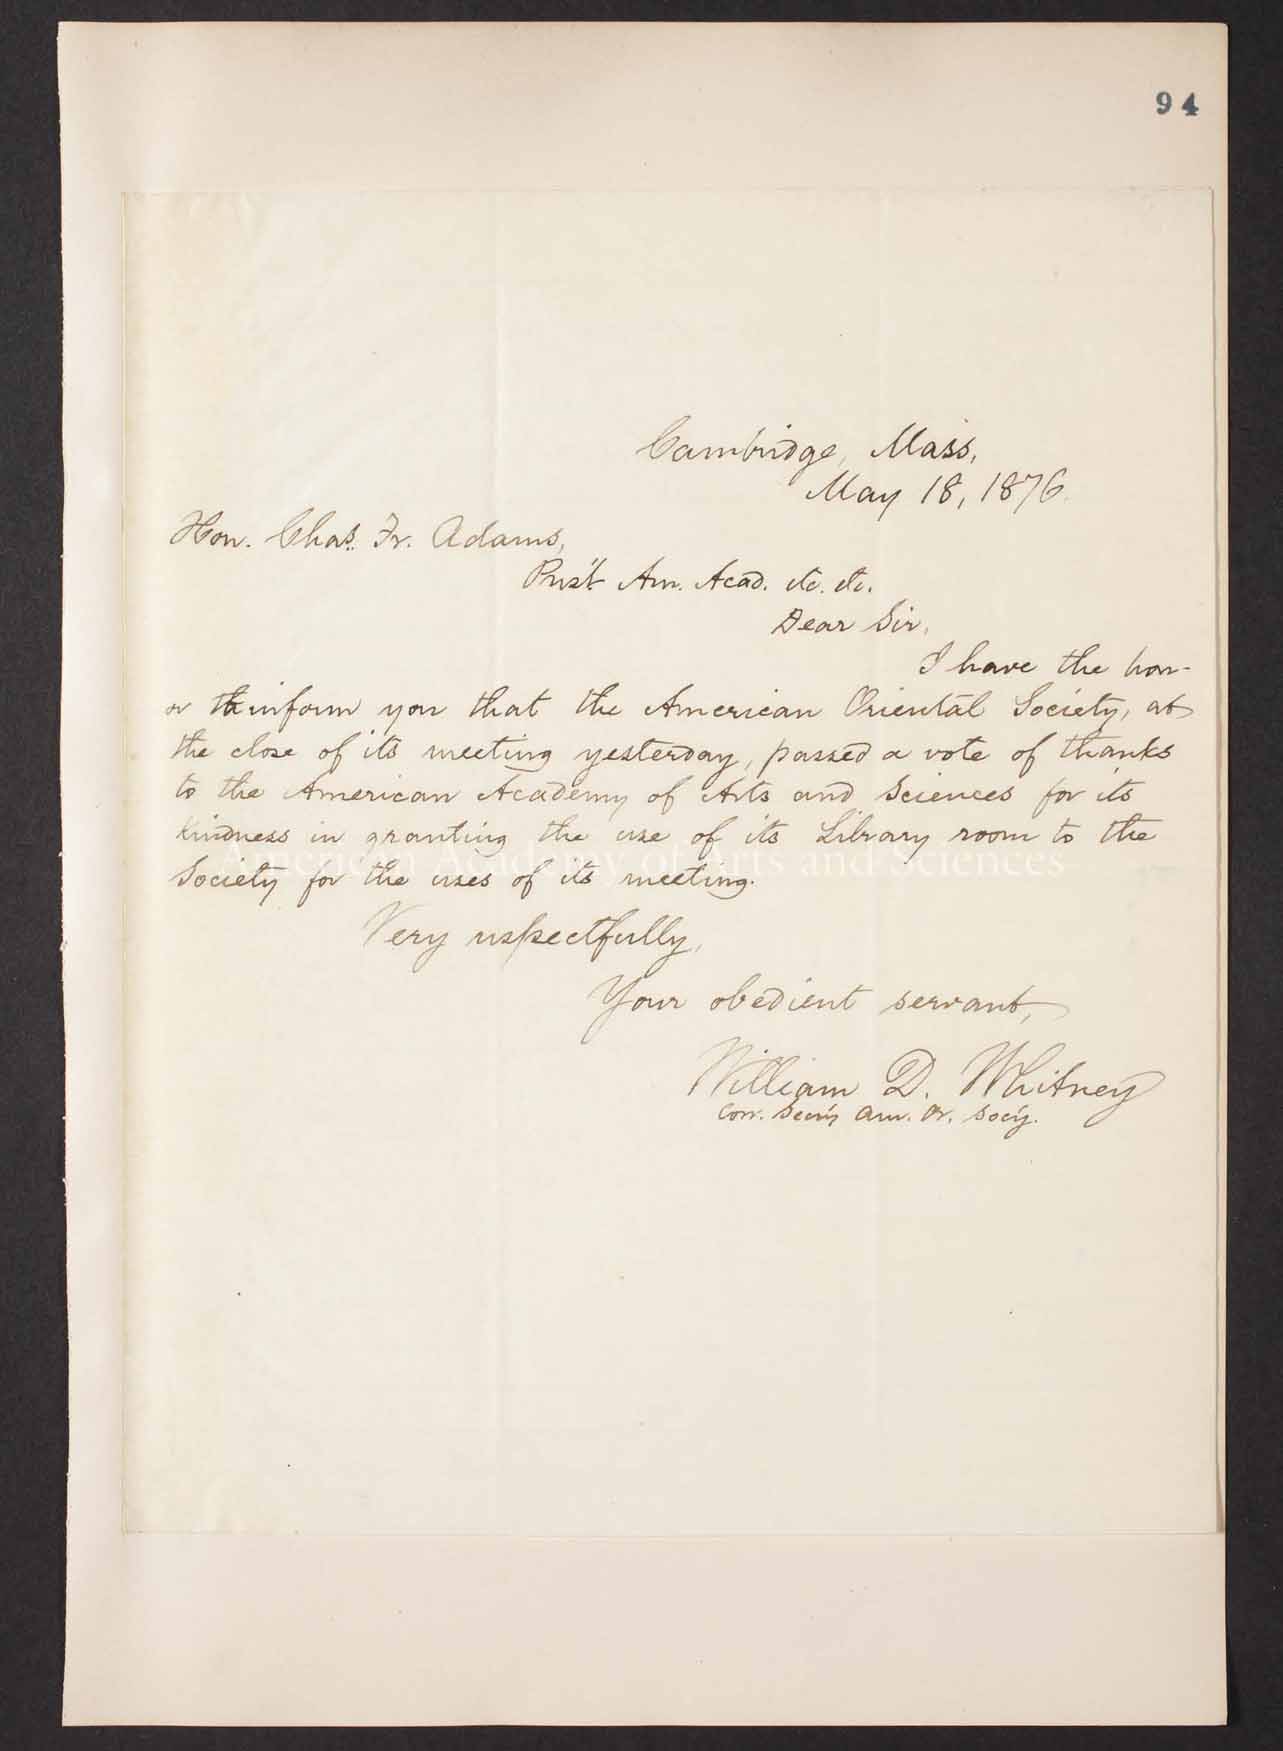 94
Cambridge, Mass,
May 18, 1876.
Hon. Chas. Fr. Adams,
Pres't Am. Acad. etc. etc.
Dear Sir,
I have the hon-
or to inform you that the American Oriental Society, at
the close of its meeting yesterday, passed a vote of thanks
to the American Academy of Arts and Sciences for its
kindness in granting the use of its Library room to the
American Academy of Arts and Sciences
Society for the uses of its meeting.
Very respectfully,
Your obedient servant,
William D. Whitney
Corr. Sec'y Am. Or. Soc'y.